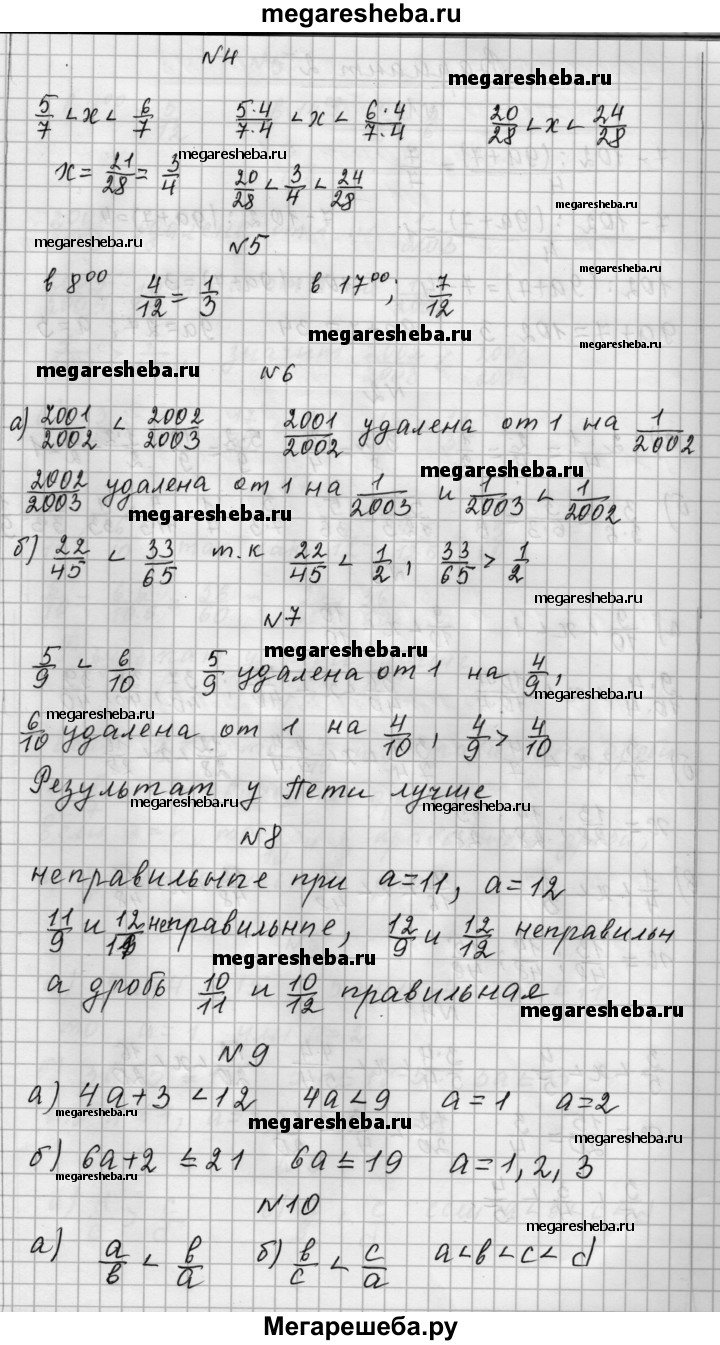 megaresheba.ru
N4
megaresheba.ru
5/7 < x < 6/7    5·4/7·4 < x < 6·4/7·4    20/28 < x < 24/28
x = 21/28 = 3/4    20/28 < 3/4 < 24/28
megaresheba.ru
megaresheba.ru
megaresheba.ru
N5
в 8⁰⁰  4/12 = 1/3    в 17⁰⁰;  7/12
megaresheba.ru
megaresheba.ru
N6
а) 2001/2002 < 2002/2003    2001/2002 удалена от 1 на 1/2002
megaresheba.ru
2002/2003 удалена от 1 на 1/2003 и 1/2003 < 1/2002
megaresheba.ru
б) 22/45 < 33/65  т.к  22/45 < 1/2, 33/65 > 1/2
megaresheba.ru
N7
megaresheba.ru
5/9 < 6/10    5/9 удалена от 1 на 4/9,
megaresheba.ru
6/10 удалена от 1 на 4/10, 4/9 > 4/10
Результат у Пети лучше
megaresheba.ru
megaresheba.ru
N8
неправильные при a=11, a=12
11/9 и 12/11 неправильные, 12/9 и 12/12 неправильн
megaresheba.ru
а дробь 10/11 и 10/12 правильная
megaresheba.ru
N9
а) 4a+3 < 12    4a < 9    a = 1    a = 2
megaresheba.ru
megaresheba.ru
megaresheba.ru
б) 6a+2 ≤ 21    6a ≤ 19    a = 1, 2, 3
megaresheba.ru
N10
megaresheba.ru
а) a/в < в/a    б) в/c < c/a    a < в < c < d
Мегарешеба.ру